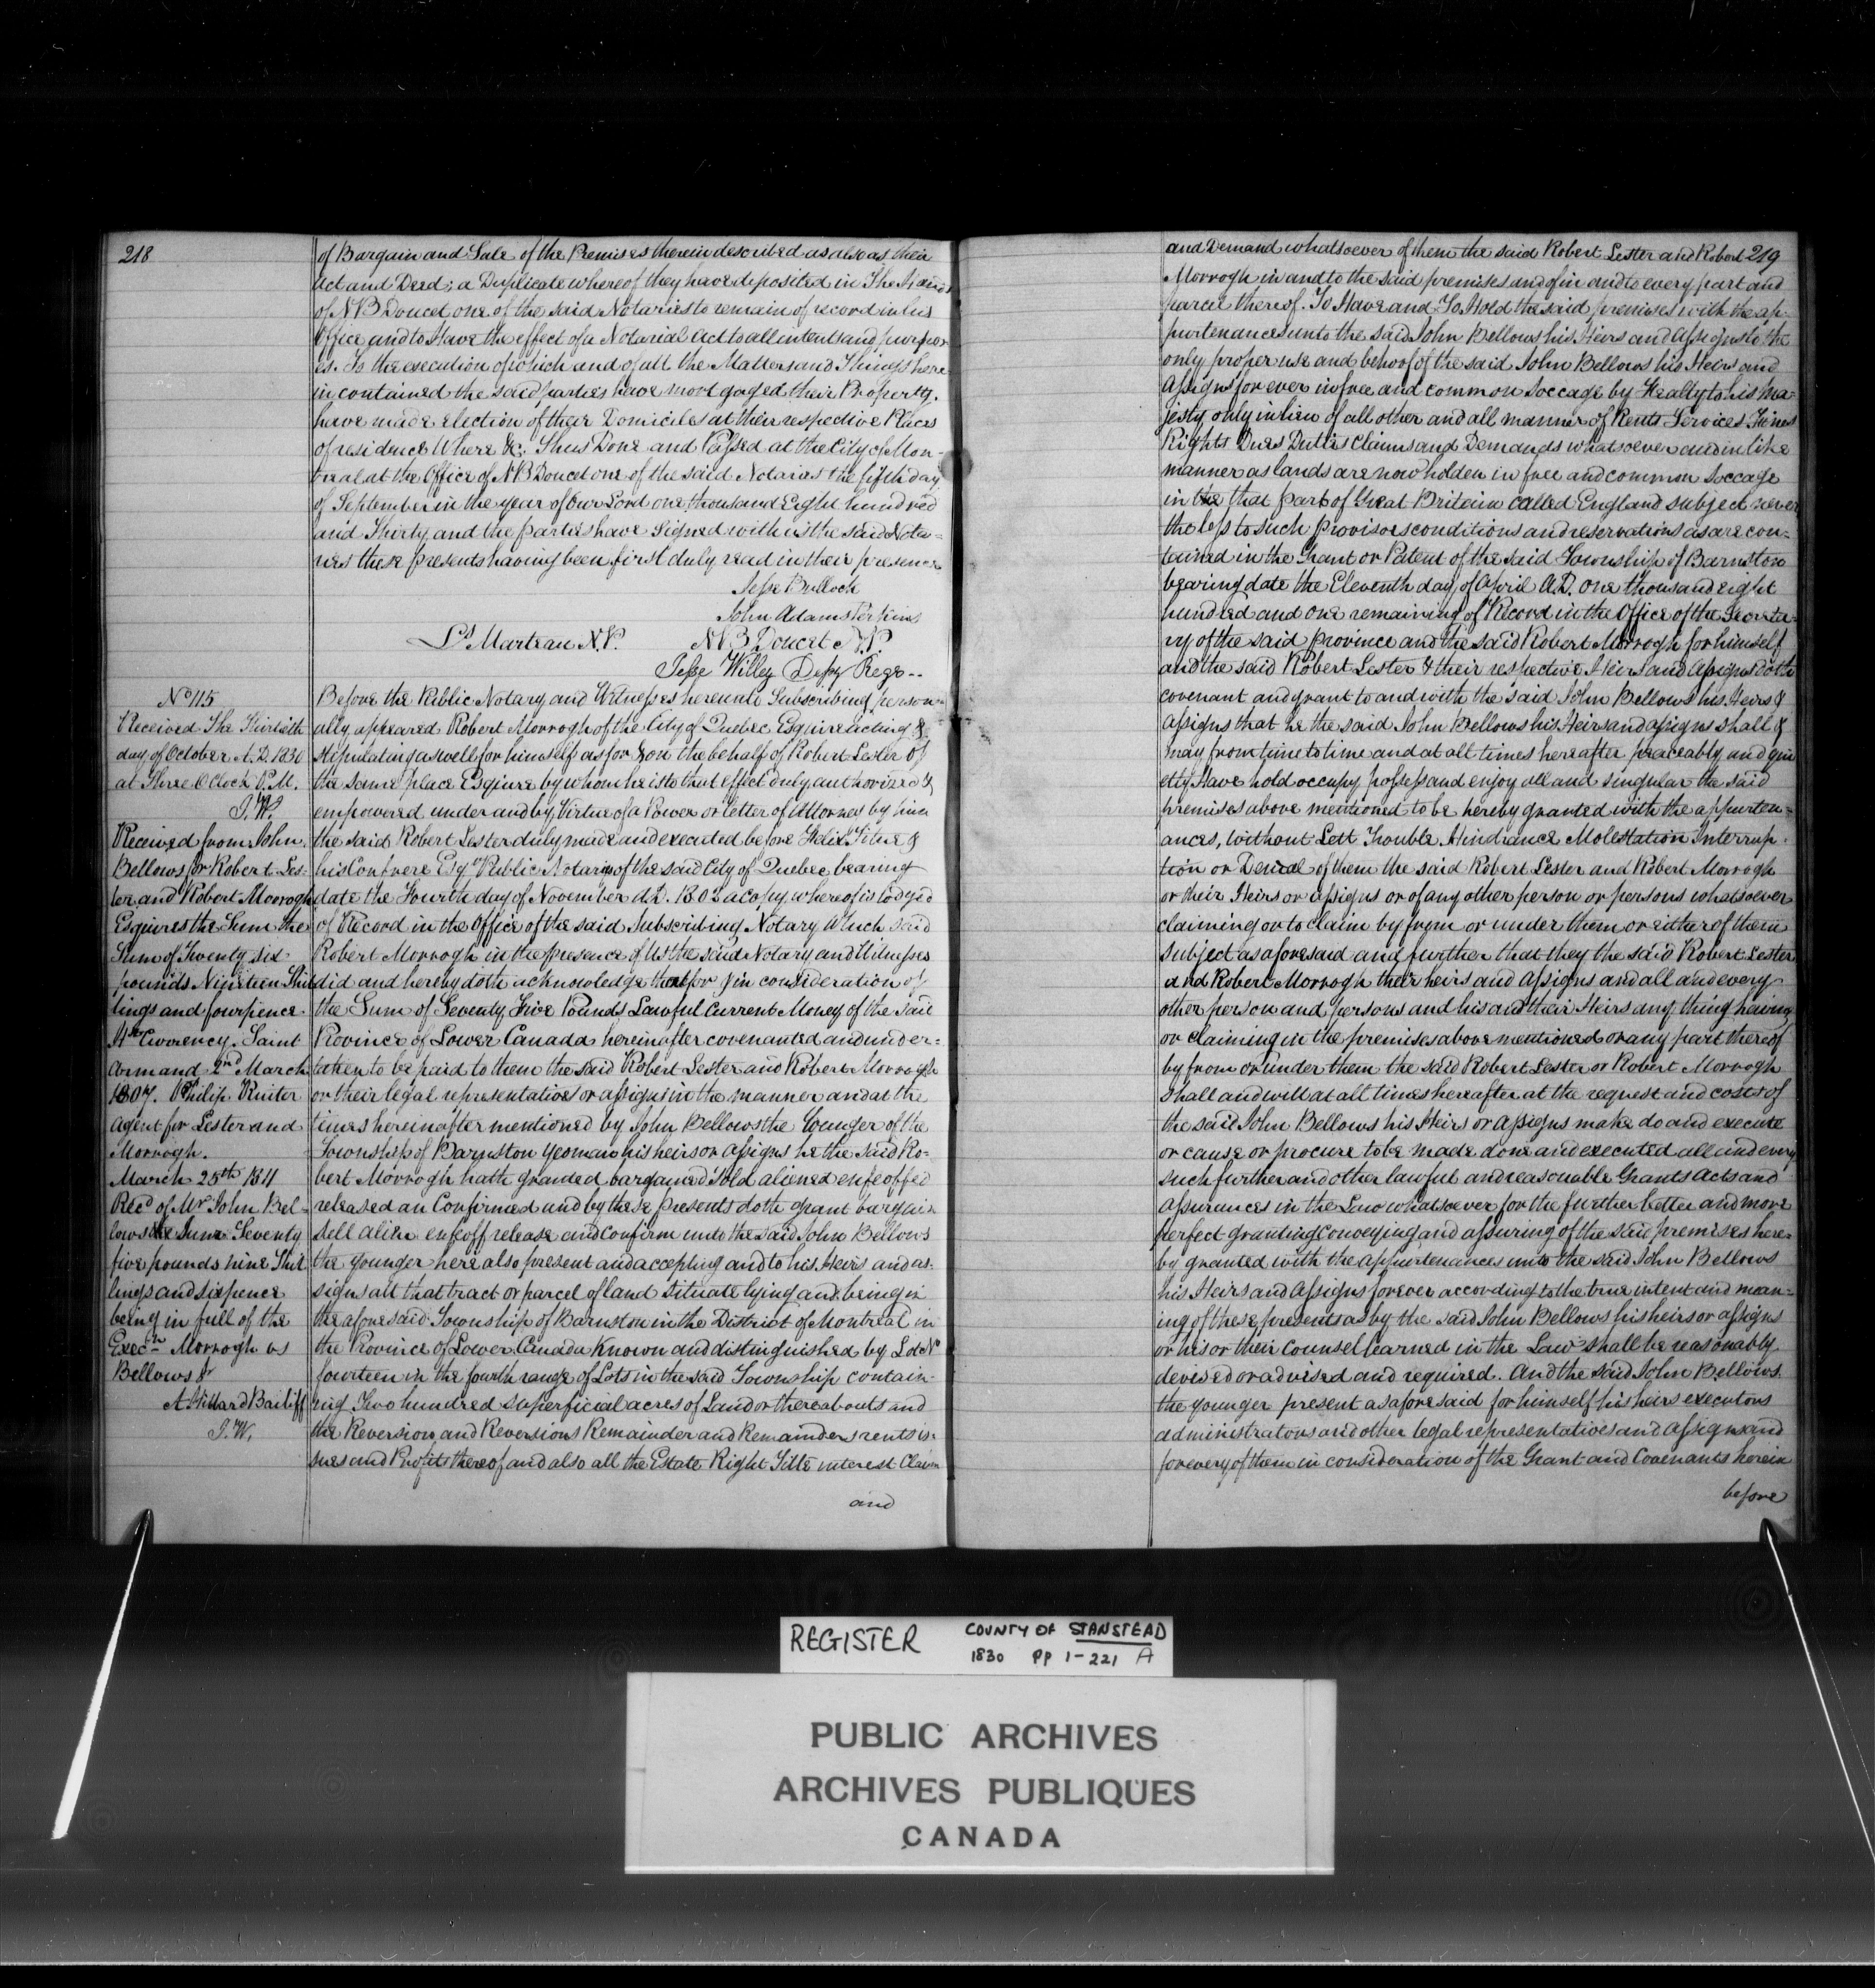 218
of Bargain and Sale of the Premises therein described as also as their
Act and Deed; a Duplicate whereof they have deposited in The Hands
of N B Doucet one of the said Notaries to remain of record in his
Office and to Have the effect of a Notarial Act to all intents and purpos-
es. To the execution of which and of all the Matters and Things here
in contained the said parties have mortgaged their Property.
have made election of their Domiciles at their respective Places
of residence Where &c. Thus Done and Passed at the City of Mon-
treal at the Office of N B Doucet one of the said Notaries the fifth day
of September in the year of Our Lord one thousand Eight hundred
and Thirty and the parties have Signed with us the said Nota-
ries these presents having been first duly read in their presence
Jesse Bullock
John Adams Perkins
Ls Marteau N.P. N B Doucet N.P.
Jesse Willey Depy Regr --
No 115
Received The Thirtieth
day of October A.D. 1830
at Three O Clock P.M.
J.W.
Received from John
Bellows for Robert Les-
ter and Robert Morrogh
Esquires the Sum the
Sum of Twenty six
pounds Nineteen Shil
lings and fourpence
Currency. Saint
Armand 2nd March
1807. Philip Ruiter
Agent for Lester and
Morrogh.
March 25th 1811
Recd of Mr John Bel-
lows the Sum Seventy
five pounds nine Shil
lings and sixpence
being in full of the
Execn Morrogh vs
Bellows Jr
A Hibbard Bailiff
J.W.
Before the Public Notary and Witnesses hereunto Subscribing person-
ally appeared Robert Morrogh of the City of Quebec Esquire acting &
stipulating as well for himself as for & on the behalf of Robert Lester of
the same place Esquire by whom he is to that effect duly authorized &
empowered under and by Virtue of a Power or letter of Attorney by him
the said Robert Lester duly made and executed before Felix Tetue &
his Confrere Esqrs Public Notarys of the said City of Quebec bearing
date the Fourth day of November A.D. 1802 a copy whereof is lodged
of Record in the Office of the said Subscribing Notary Which said
Robert Morrogh in the presence of Us the said Notary and Witnesses
did and hereby doth acknowledge that for & in consideration of
the Sum of Seventy Five Pounds Lawful Current Money of the said
Province of Lower Canada hereinafter covenanted and under-
taken to be paid to them the said Robert Lester and Robert Morrogh
or their legal representatives or assigns in the manner and at the
times hereinafter mentioned by John Bellows the Younger of the
Township of Barnston Yeoman his heirs or Assigns he the said Ro-
bert Morrogh hath granted bargained Sold aliened enfeoffed
released an Confirmed and by these presents doth grant bargain
sell alien enfeoff release and confirm unto the said John Bellows
the younger here also present and accepting and to his Heirs and as-
signs all that tract or parcel of land Situate lying and being in
the aforesaid Township of Barnston in the District of Montreal in
the Province of Lower Canada Known and distinguished by Lot No
fourteen in the fourth range of Lots in the said Township contain-
ing Two hundred superficial acres of Land or thereabouts and
the Reversion and Reversions Remainder and Remainders rents is-
sues and Profits thereof and also all the Estate Right Title interest Claim
and
219
and Demand whatsoever of them the said Robert Lester and Robert
Morrogh in and to the said premises and of in and to every part and
parcel thereof. To Have and To Hold the said premises with the ap-
purtenances unto the said John Bellows his Heirs and Assigns to the
only proper use and behoof of the said John Bellows his Heirs and
Assigns for ever in free and common Soccage by Fealty to his Ma-
jesty only in lieu of all other and all manner of Rents Services Fines
Rights Dues Duties Claims and Demands whatsoever and in like
manner as lands are now holden in free and common Soccage
in the that part of Great Britain called England subject never
the less to such provisoes conditions and reservations as are con-
tained in the Grant or Patent of the said Township of Barnston
bearing date the Eleventh day of April A.D. one thousand eight
hundred and one remaining of Record in the Office of the Secreta-
ry of the said province and the said Robert Morrogh for himself
and the said Robert Lester & their respective Heirs and Assigns doth
covenant and grant to and with the said John Bellows his Heirs &
Assigns that he the said John Bellows his Heirs and assigns shall &
may from time to time and at all times hereafter peaceably and qui
etly Have hold occupy possess and enjoy all and singular the said
premises above mentioned to be hereby granted with the appurten-
ances, without Lett Trouble Hindrance Molestation Interrup-
tion or Denial of them the said Robert Lester and Robert Morrogh
or their Heirs or assigns or of any other person or persons whatsoever
claiming or to claim by from or under them or either of them
subject as aforesaid and further that they the said Robert Lester
and Robert Morrogh their heirs and Assigns and all and every
other person and persons and his and their Heirs any thing having
or claiming in the premises above mentioned or any part thereof
by from or under them the said Robert Lester or Robert Morrogh
shall and will at all times hereafter at the request and costs of
the said John Bellows his Heirs or Assigns make do and execute
or cause or procure to be made done and executed all and every
such further and other lawful and reasonable Grants Acts and
Assurances in the Law whatsoever for the further better and more
perfect granting conveying and assuring of the said premises here-
by granted with the appurtenances unto the said John Bellows
his Heirs and Assigns forever according to the true intent and mean-
ing of these presents as by the said John Bellows his heirs or assigns
or his or their Counsel learned in the Law shall be reasonably
devised or advised and required. And the said John Bellows
the younger present as aforesaid for himself his heirs executors
administrators and other legal representatives and Assigns and
for every of them in consideration of the Grant and Covenants herein
before
REGISTER COUNTY OF STANSTEAD
1830 PP 1-221 A
PUBLIC ARCHIVES
ARCHIVES PUBLIQUES
CANADA